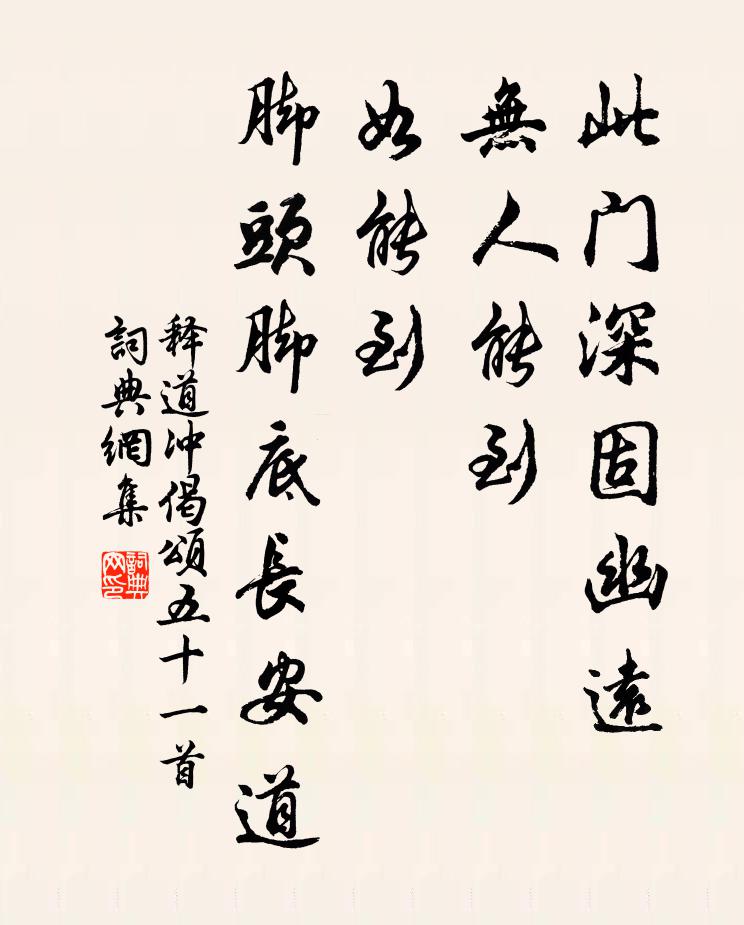 此门深固幽遠
無人能到
如能到
脚頭脚底長安道
释道冲偈頌五十一首
詞典網集
詞典网印